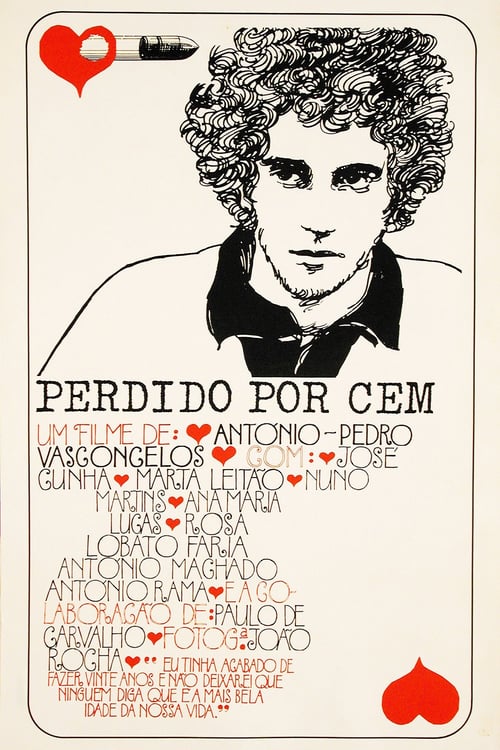 PERDIDO POR CEM
UM FILME DE: ANTÓNIO-PEDRO
VASCONCELOS COM: JOSÉ
CUNHA MARTA LEITÃO NUNO
MARTINS ANA MARIA
LUCAS ROSA
LOBATO FARIA
ANTÓNIO MACHADO
ANTÓNIO RAMA E A CO-
LABORAÇÃO DE: PAULO DE
CARVALHO FOTOGª: JOÃO
ROCHA "EU TINHA ACABADO DE
FAZER VINTE ANOS E NÃO DEIXAREI QUE
NINGUÉM DIGA QUE É A MAIS BELA
IDADE DA NOSSA VIDA."